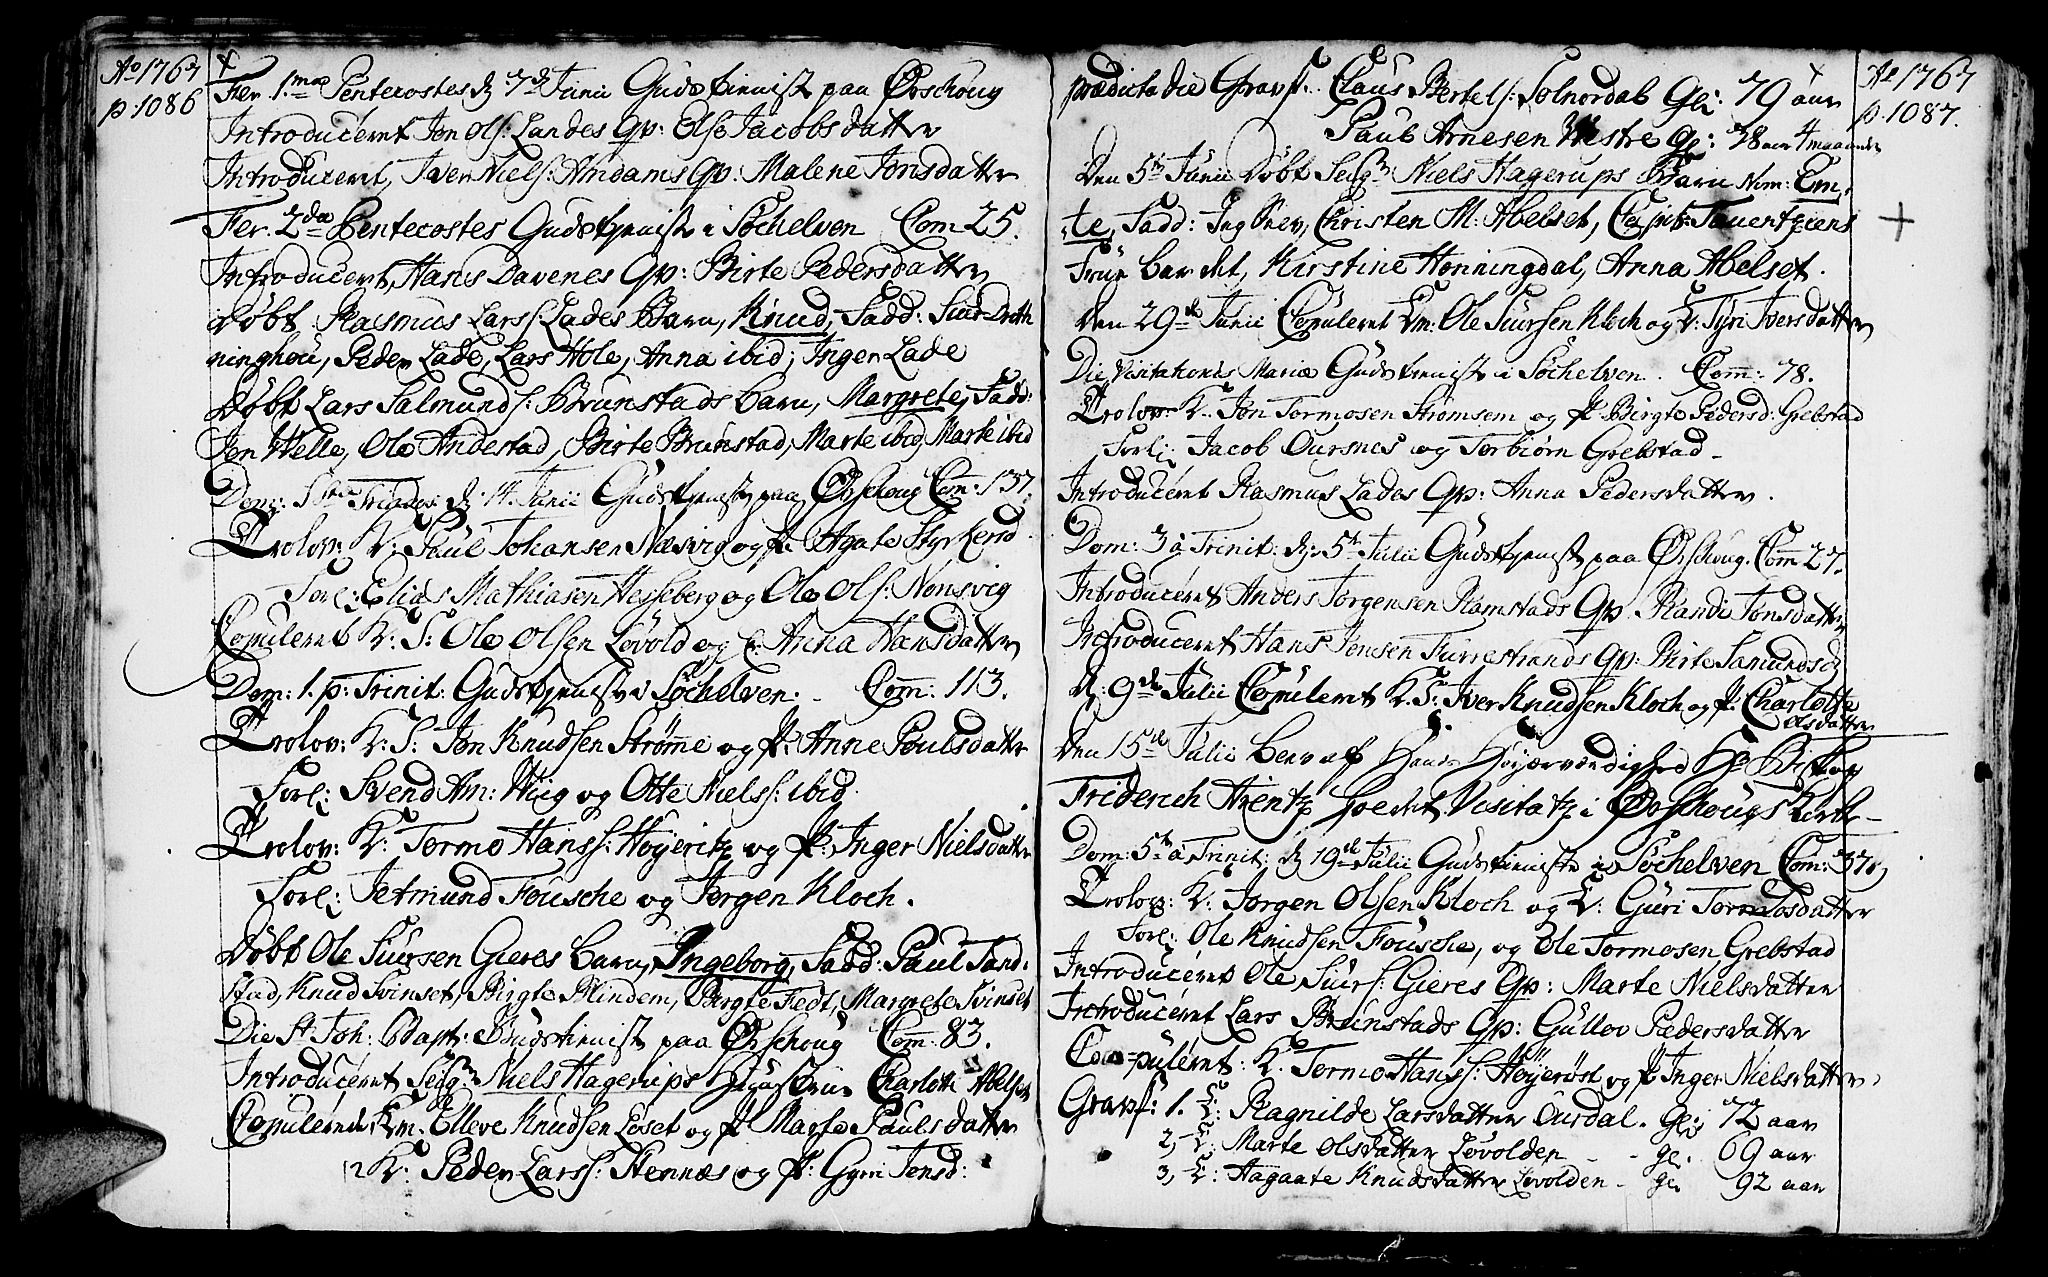 Ao 1767
p. 1086
Fer. 1.mæ Pentecostes d. 7de Junii Gudstienist paa Ørschoug
Introduceret Jon Ols: Landes Qv: Else Jacobsdatter
Introduceret, Iver Niels: Amdams Qv: Malene Jonsdatter
Fer. 2dæ Pentecostes Gudstienist i Søchelven Com 25.
Introduceret, Hans Davenes Qv: Birte Pedersdatter
Døbt, Rasmus Larss: Lades Barn, Knud, Fadd: Siur Droth
ninghou, Peder Lade, Lars Hole, Anna ibid, Inger Lade
Døbt Lars Salmunds: Brunstads barn, Margrete, Fadd:
Jon Welle, Ole Andestad, Birte Brunstad, Marte ibid Marte ibid
Dom: Trinitatis d: 14. Junii Gudstienist paa Ørschoug Com: 137.
Trolov: K: Paul Johansen Næsvig og P: Agate Styrkersd
Forl: Elias Mathiasen Hesseberg og Ole Ols: Nonsvig
Copuleret K: S: Ole Olsen Løvold og P: Anna Hansdatter
Dom: 1. p: Trinit: Gudstienist i Søchelven. - Com: 113.
Trolov: K: S: Jon Knudsen Strømme og P: Anne Poulsdatter
Forl: Svend Am: Wiig og Otte Nielss: ibid.
Trolov: K: Tormo Hanss: Høyeritz og P: Inger Nielsdatter
Forl: Jetmund Fousche og Jørgen Kloch.
Døbt Ole Siursen Gieres barn, Ingeborg, Fadd: Paul Tand-
stad, Knud Svinset, Birgte Blindem, Birgte Fedt, Margrete Svinset
Die St: Joh: Bapt: Gudstienist paa Ørschoug Com: 83.
Introduceret Seigr Niels Hagerups Hustrue Charlotte Abelset
Copulerede, Em. Elleve Knudsen Løset og P Marte Paulsdatter
2 K: Peder Larss: Stennæs og P: Gyri Jensd:
Ao 1767
p. 1087.
prædicta die Gravf. Claus Bertels: Solnordal Gl: 79 aar
Paul Arnesen Westre gl: 78 aar 4 maaneder
Den 5te Junii Døbt Seigr Niels Hagerups Barn Nom: Em,
te, Fadd: Christen M: Abelset, Capit: Tauentziens
Frue bar det, Kirstine Honningdal, Anna Abelset.
Den 29de Junii Copuleret Em: Ole Siursen Kloch og E: Tyri Iversdatter
Die Visitationis Mariæ Gudstienist i Søchelven. Com: 78.
Trolov: K: Jon Tormosen Strømsem og P: Birgte Pedersd: Grebstad
Forl: Jacob Oursnes og Torbiørn Grebstad -
Introduceret Rasmus Lades Qv: Anna Pedersdatter.
Dom: 3 a Trinit: d: 5te Julii Gudstienist paa Ørschoug. Com 27.
Introduceret Anders Jørgensen Ramstads Qv. Randi Jonsdatter
Introduceret Hans Jensen Furrestrands Qv: Birte Samundsd
d: 9de Julii Copuleret K. S: Iver Knudsen Kloch og P: Charlotte
Olsdatter
Den 15de Julii blev af Hans Høyærværdighed Hr Biskop
Friderich Arentz holdet Visitatz i Ørschougs Kirke -
Dom: 5te a Trinit: d 19de Julii Gudstieniste i Søchelven Com: 37.
Trolov: K: Jørgen Olsen Kloch og E: Guri Tormosdatter
Forl: Ole Knudsen Fousche, og Ole Tormosen Grebstad
Introduceret Ole Siurs: Gieres Qv: Marte Nielsdatter
Introduceret Lars Brunstads Qv: Gullov Pedersdatter
Copuleret: K. Tormo Hanss: Høyerøst og P Inger Nielsdatter
Gravf: 1. E: Ragnilde Larsdatter Ourdal. gl: 72 aar
2, E: Marte Olsdatter Løvolden - - gl. 69 aar
3, E: Aagaate Knudsdatter Løvolden - gl 92 aar